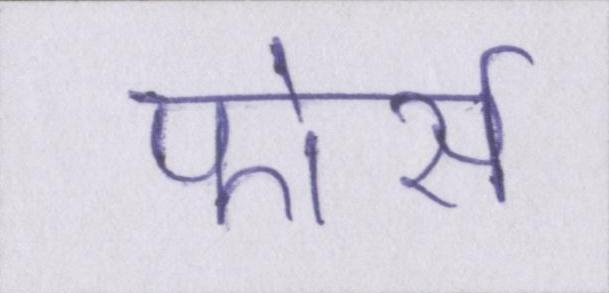 फोर्स